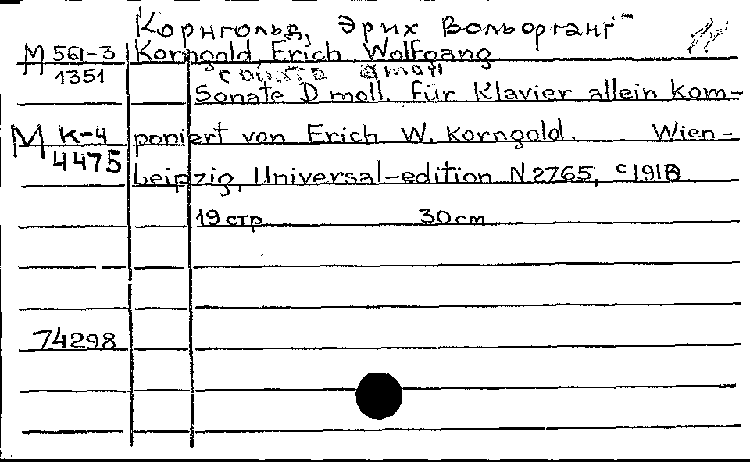 Корнгольд, Эрих Вольфганг
М 561-3 Korngold Erich Wolfgang
1351
Sonate D moll. für Klavier allein kom-
М К-4 poniert von Erich W. Korngold. Wien-
4475
Leipzig, Universal-edition N 2765, c1918
19 стр 30 cm
74298